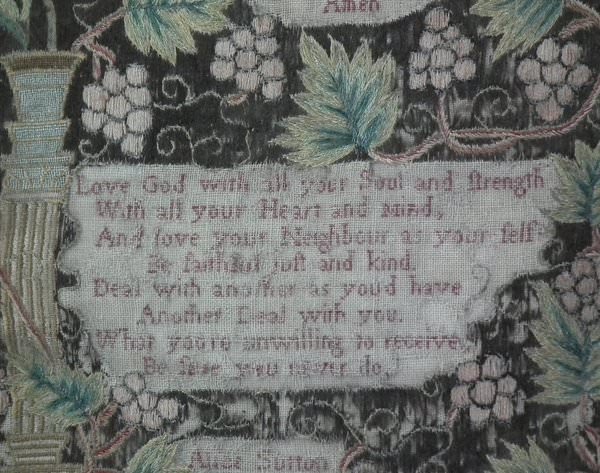 Amen
Love God with all your Soul and ſtrength
With all your Heart and mind,
And love your Neighbour as your ſelf
Be faithful juſt and kind.
Deal with another as you'd have
Another Deal with you.
What you're unwilling to receive,
Be ſure you never do.
Sutton